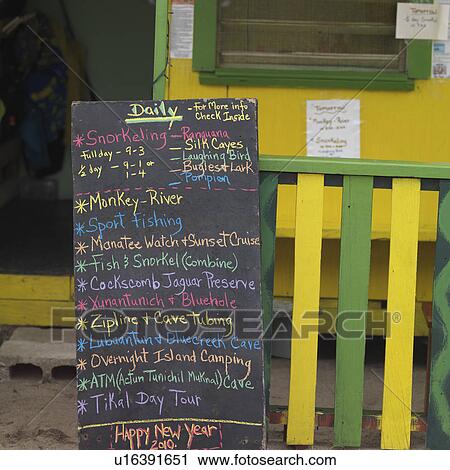 Daily
- For More info
Check Inside
* Snorkeling - Ranguana
- Silk Cayes
Full day - 9-3
- Laughing Bird
1/2 day - 9-1 or
1-4
- Bugles & Lark
- Pompion
* Monkey-River
* Sport fishing
* Manatee Watch & Sunset Cruise
* Fish & Snorkel (Combine)
* Cockscomb Jaguar Preserve
* Xunantunich & Bluehole
* Zipline & Cave Tubing
* Lubuantun & Bluecreek Cave
* Overnight Island Camping
* ATM (Actun Tunichil Muknal) Cave
* Tikal Day Tour
Happy New Year
2010.
Tomorrow
Tomorrow
Monkey-River
Snorkeling
fotosearch
u16391651 www.fotosearch.com